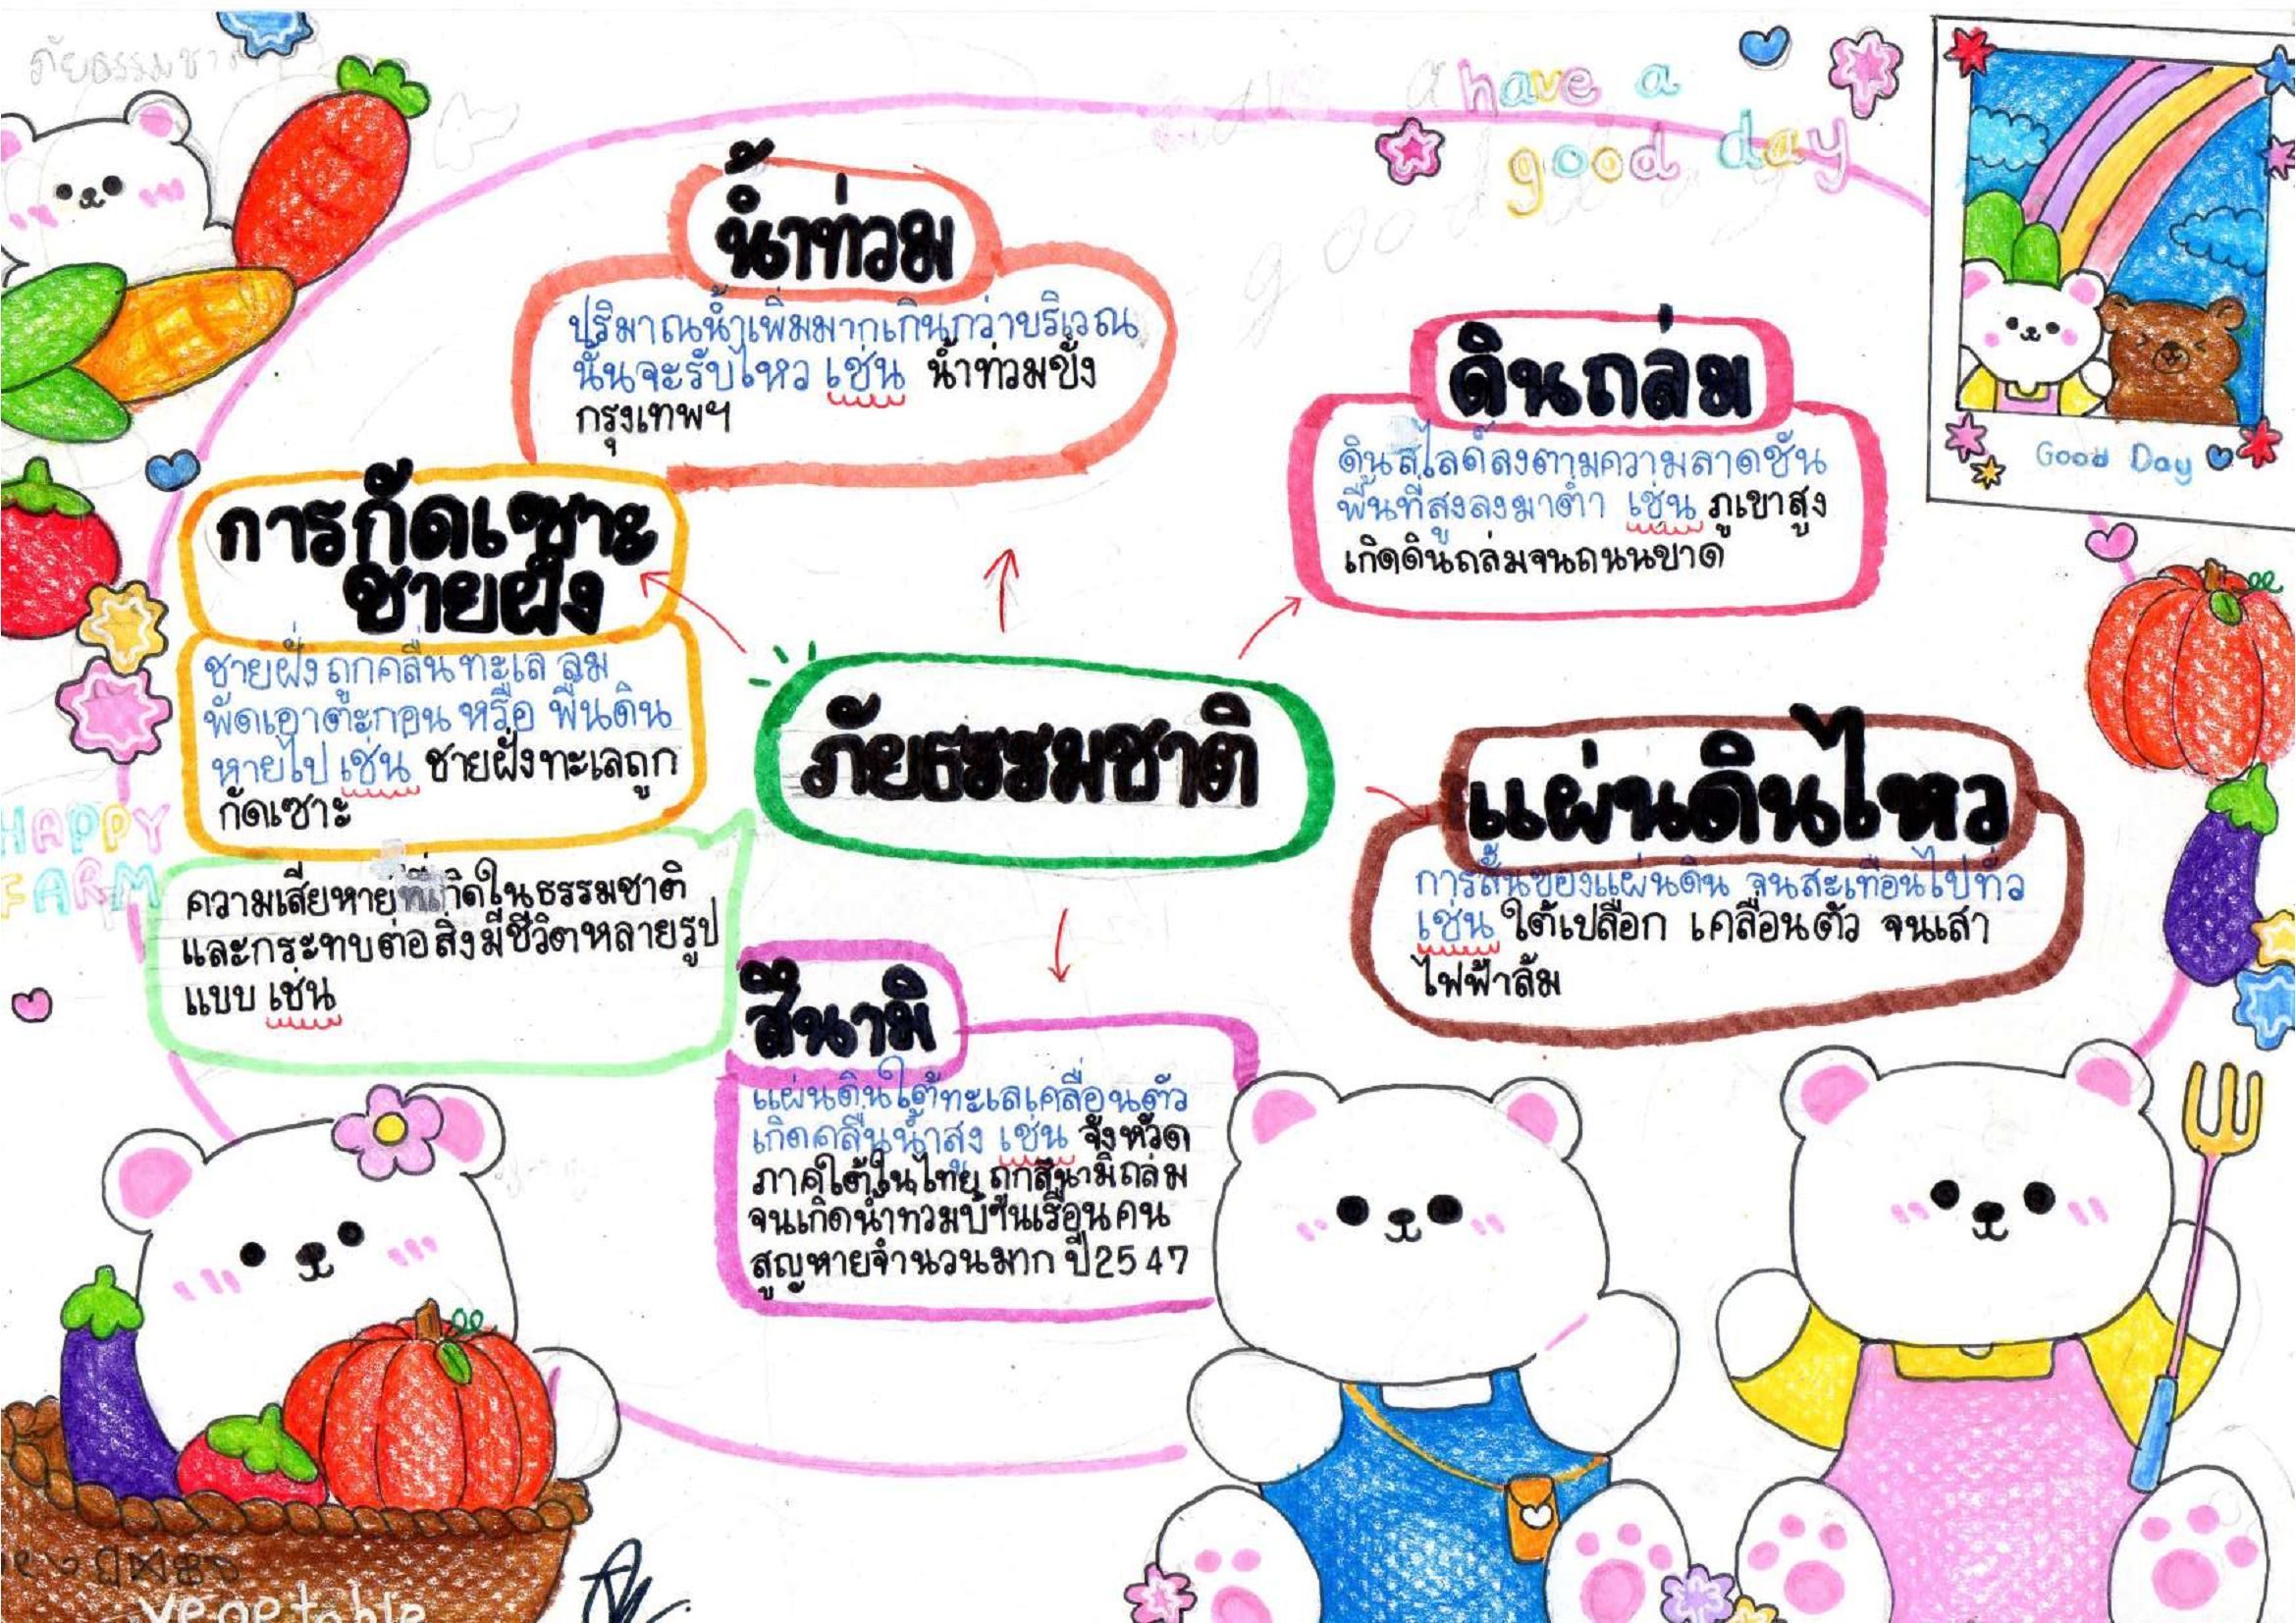 ภัยธรรมชาติ
have a
good day
Good Day
น้ำท่วม
ปริมาณน้ำเพิ่มมากเกินกว่าบริเวณ
นั้นจะรับไหว เช่น น้ำท่วมขัง
กรุงเทพฯ
ดินถล่ม
ดินสไลด์ลงตามความลาดชัน
พื้นที่สูงลงมาต่ำ เช่น ภูเขาสูง
เกิดดินถล่มจนถนนขาด
การกัดเซาะ
ชายฝั่ง
ชายฝั่งถูกคลื่นทะเล ลม
พัดเอาตะกอน หรือ พื้นดิน
หายไป เช่น ชายฝั่งทะเลถูก
กัดเซาะ
ภัยธรรมชาติ
แผ่นดินไหว
การสั่นของแผ่นดิน จนสะเทือนไปทั่ว
เช่น ใต้เปลือก เคลื่อนตัว จนเสา
ไฟฟ้าล้ม
HAPPY
FARM
ความเสียหายที่เกิดในธรรมชาติ
และกระทบต่อสิ่งมีชีวิตหลายรูป
แบบ เช่น
สึนามิ
แผ่นดินใต้ทะเลเคลื่อนตัว
เกิดคลื่นน้ำสูง เช่น จังหวัด
ภาคใต้ในไทย ถูกสึนามิถล่ม
จนเกิดน้ำทวมบ้านเรือนคน
สูญหายจำนวนมาก ปี2547
vegetable